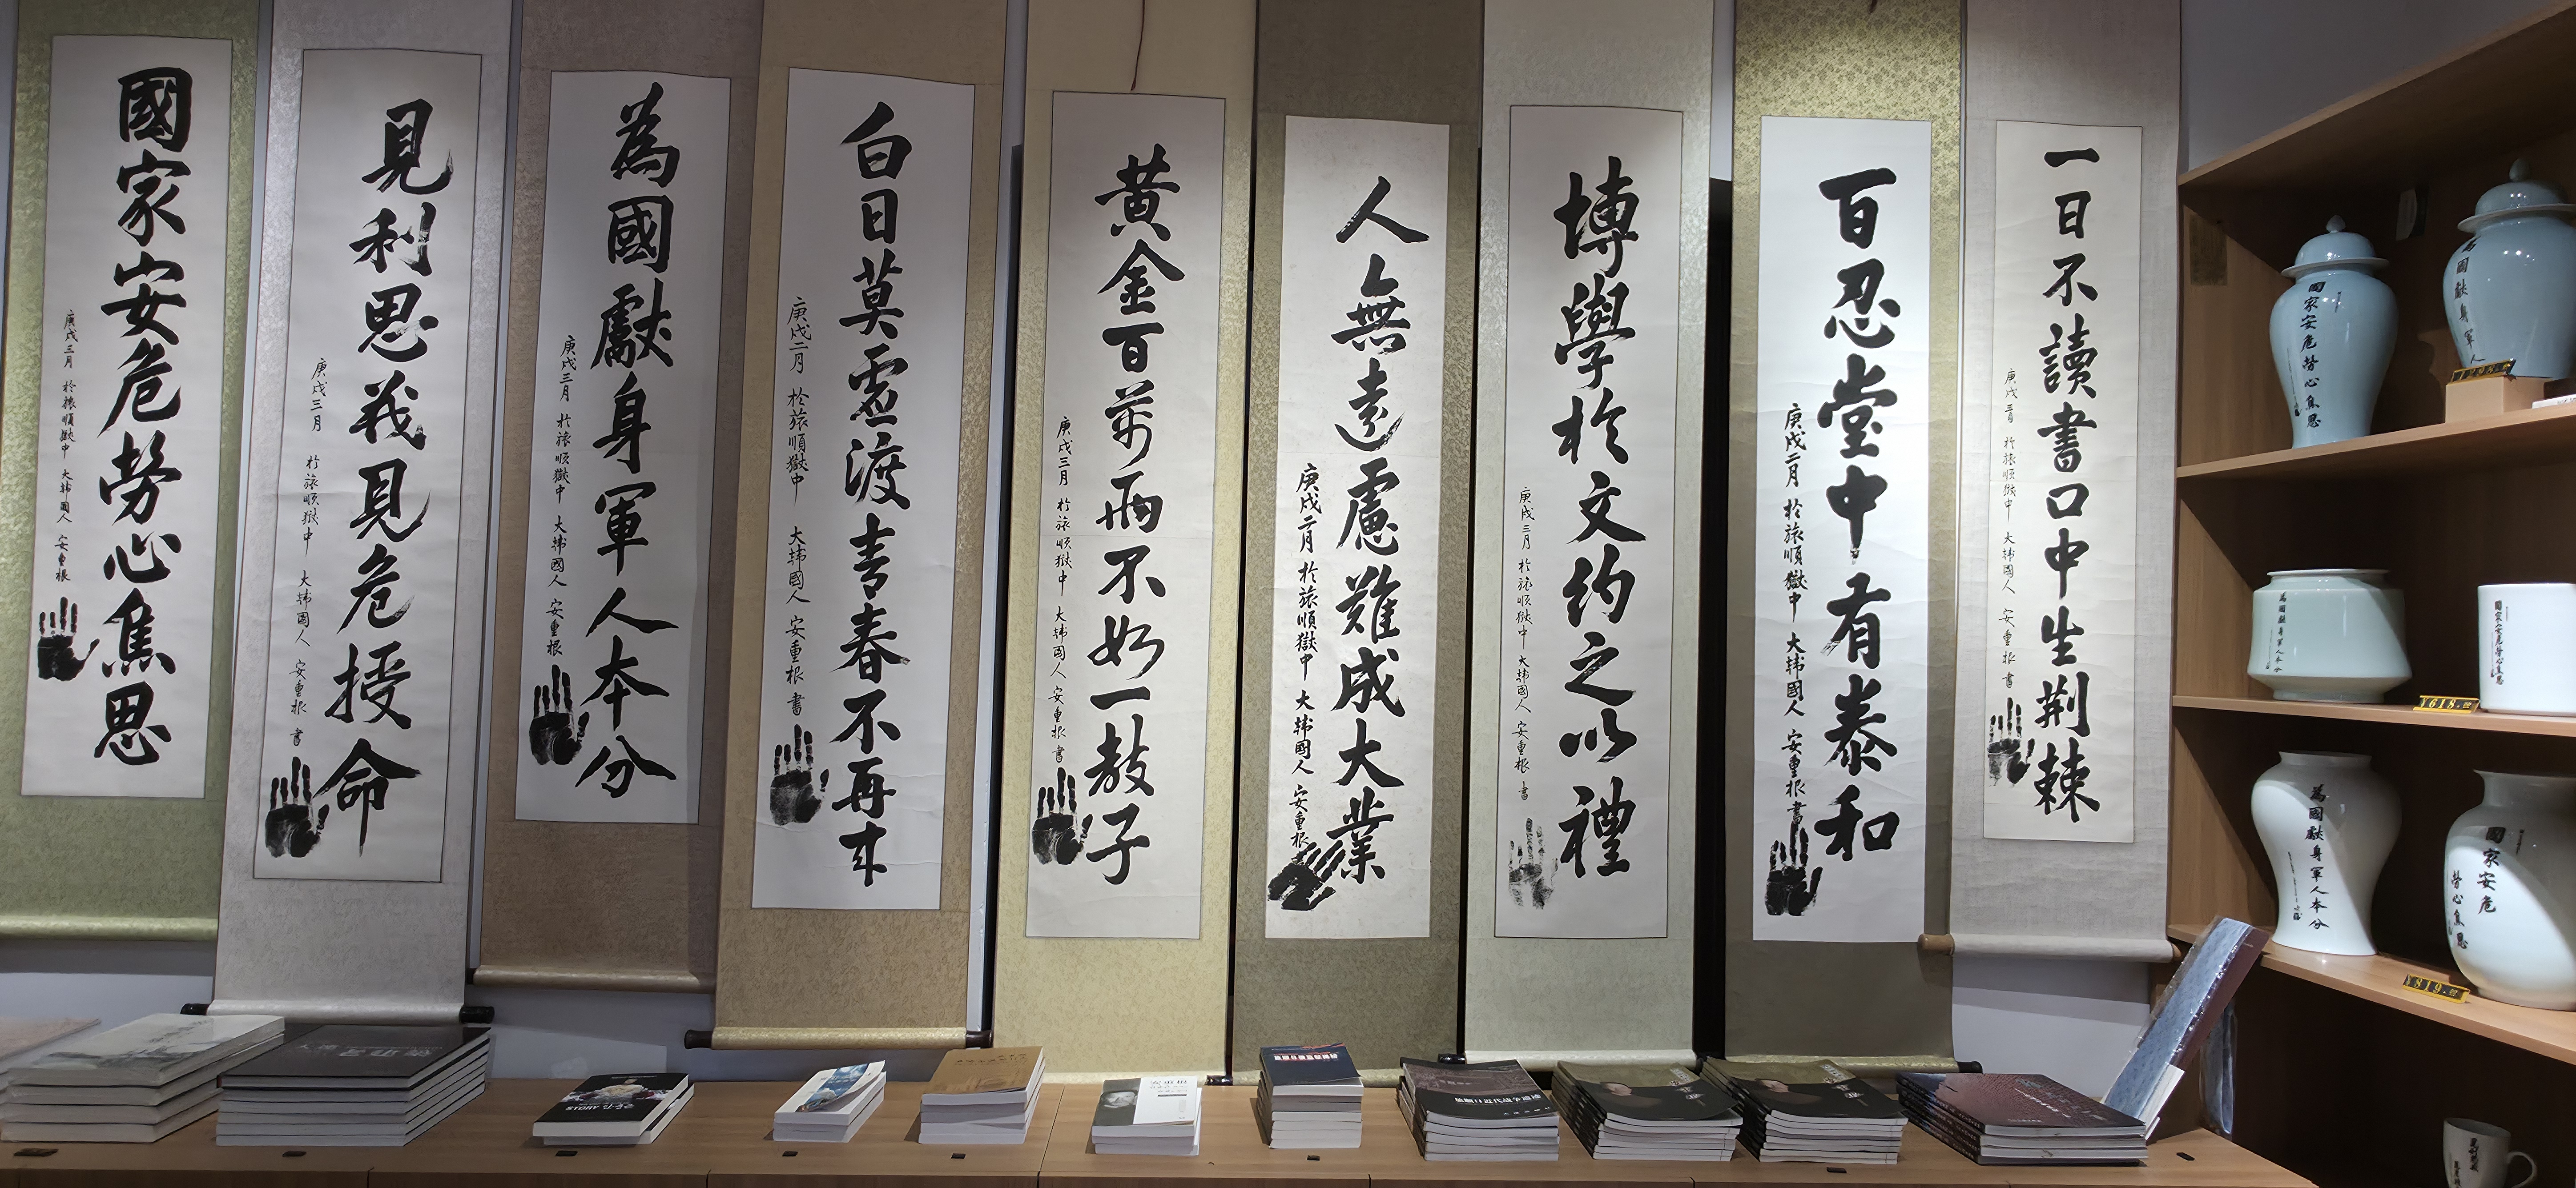 國家安危勞心焦思
庚戌三月 於旅順獄中 大韓國人 安重根
見利思義見危授命
庚戌三月 於旅順獄中 大韓國人 安重根 書
為國獻身軍人本分
庚戌三月 於旅順獄中 大韓國人 安重根
白日莫虛渡青春不再來
庚戌二月 於旅順獄中 大韓國人 安重根 書
黃金百萬兩不如一教子
庚戌三月 於旅順獄中 大韓國人 安重根 書
人無遠慮難成大業
庚戌二月 於旅順獄中 大韓國人 安重根
博學於文約之以禮
庚戌三月 於旅順獄中 大韓國人 安重根 書
百忍堂中有泰和
庚戌二月 於旅順獄中 大韓國人 安重根 書
一日不讀書口中生荊棘
庚戌三月 於旅順獄中 大韓國人 安重根 書
國家安危勞心焦思
為國獻身軍人
為國獻身軍人本分
國家安危勞心焦思
¥618.
為國獻身軍人本分
國家安危
勞心焦思
¥819.
STORY
安重根
旅顺日近代战争遗迹